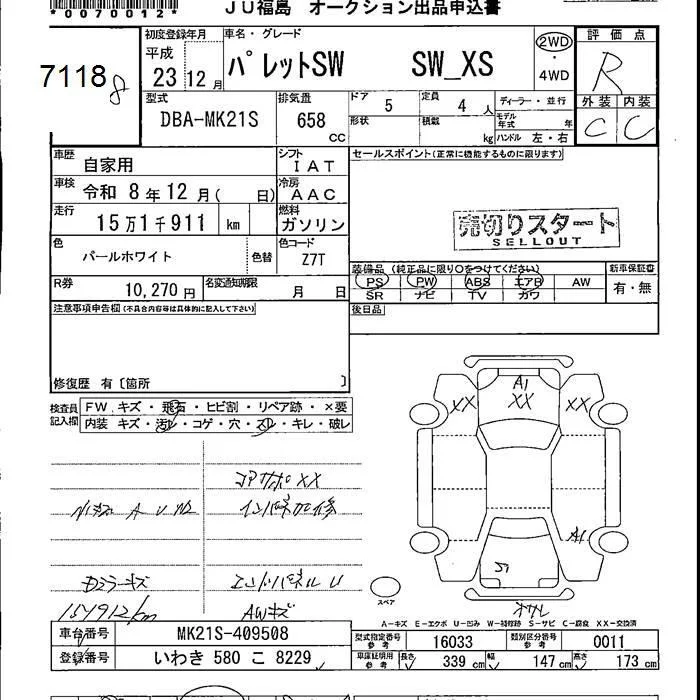 *0070012*
JU福島 オークション出品申込書
7118
8
初度登録年月
平成
23 12 月
車名・グレード
パレットSW SW_XS
2WD
・
4WD
評価点
R
外装 内装
C C
型式
DBA-MK21S
排気量
658
CC
ドア
5
定員
4 人
形状
積載
kg
ディーラー・並行
モデル年式 年
ハンドル 左・右
車歴
自家用
シフト
IAT
車検
令和 8年12月( 日)
冷房
AAC
走行
15万1千911 km
燃料
ガソリン
色
パールホワイト
色替
色コード
Z7T
R券
10,270 円
名変通知期限
月 日
セールスポイント(正常に機能するものに限ります)
売切りスタート
SELLOUT
装備品 (純正品に限り○をつけてください)
PS PW ABS エアB AW
SR ナビ TV カワ
新車保証書
有・無
後日品
注意事項申告欄(不具合内容等は具体的に記入して下さい)
修復歴 有〔箇所 〕
検査員記入欄
FW キズ・飛石・ヒビ割・リペア跡・×要
内装 キズ・汚レ・コゲ・穴・スレ・キレ・破レ
コアサポXX
A U W2
インパネ加修
ミラーキズ
エンドパネルU
151912km
AWキズ
A1
XX
XX
XX
A1
スペア
A-キズ E-エクボ U-凹み W-補修跡 S-サビ C-腐食 XX-交換済
車台番号
MK21S-409508
登録番号
いわき 580 こ 8229
型式指定番号 参考
16033
類別区分番号 参考
0011
車庫証明用 参考
長さ 339 cm
幅 147 cm
高さ 173 cm